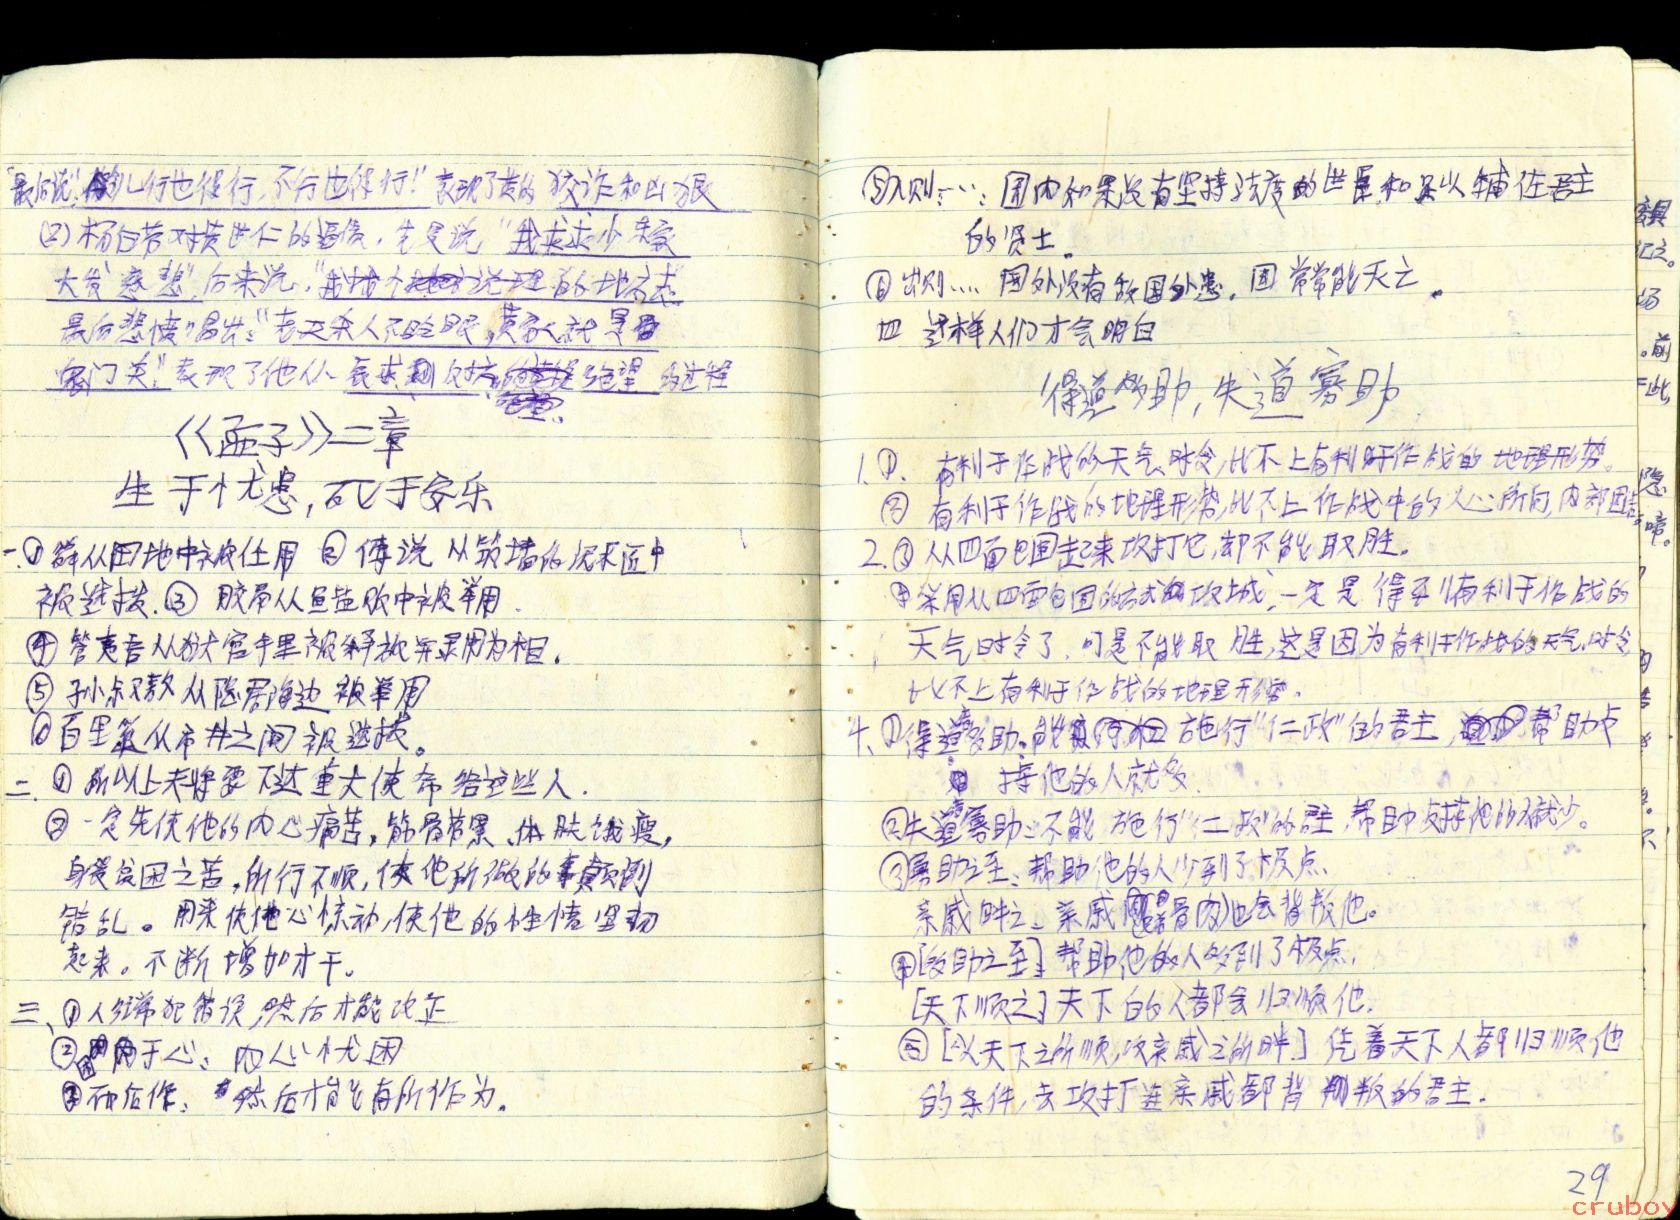 最后说:"你行也得行,不行也得行!"表现了黄的狡诈和凶狠
(2)杨白劳对黄世仁的逼债,先是说"我求求少东家
大发慈悲",后来说,"我找个说理的地方去"
最后悲愤喝出:"老天杀人不眨眼,黄家就是
鬼门关!"表现了他从哀求到对抗绝望的过程
《孟子》二章
生于忧患,死于安乐
一.①舜从田地中被任用 ②傅说从筑墙的泥水匠中
被选拔.③胶鬲从鱼盐贩中被举用.
④管夷吾从狱官手里被释放并录用为相.
⑤孙叔敖从隐居海边被举用
⑥百里奚从市井之间被选拔。
二.①所以上天将要下达重大使命给这些人.
②一定先使他的内心痛苦,筋骨劳累、体肤饿瘦,
身受贫困之苦,所行不顺,使他所做的事颠倒
错乱。用来使他心惊动,使他的性情坚韧
起来。不断增加才干.
三、①人经常犯错误,然后才能改正
②困于心:内心忧困
③而后作:然后才能有所作为.
⑤入则……:国内如果没有坚持法度的世臣和足以辅佐君主
的贤士.
⑥出则…..国外没有敌国外患.国常常能灭亡.
四 这样人们才会明白
得道多助,失道寡助.
1.①.有利于作战的天气、时令,比不上有利于作战的地理形势。
②有利于作战的地理形势,比不上作战中的人心所向,内部团结
2.③从四面包围起来攻打它,却不能取胜.
④采用从四面包围的方式攻城,一定是得到有利于作战的
天气时令了.可是不能取胜,这是因为有利于作战的天气、时令
比不上有利于作战的地理形势.
4.①得道多助:能施行"仁政"的君主,帮助支
持他的人就多.
②失道寡助:不能施行"仁政"的君主,帮助支持他的人就少。
③寡助之至:帮助他的人少到了极点.
亲戚畔之:亲戚(骨肉)也会背叛他。
④[多助之至]帮助他的人多到了极点.
[天下顺之]天下的人都会归顺他.
⑤[以天下之所顺,攻亲戚之所畔]凭着天下人都归顺他
的条件,去攻打连亲戚都背叛的君主.
29
cruboy